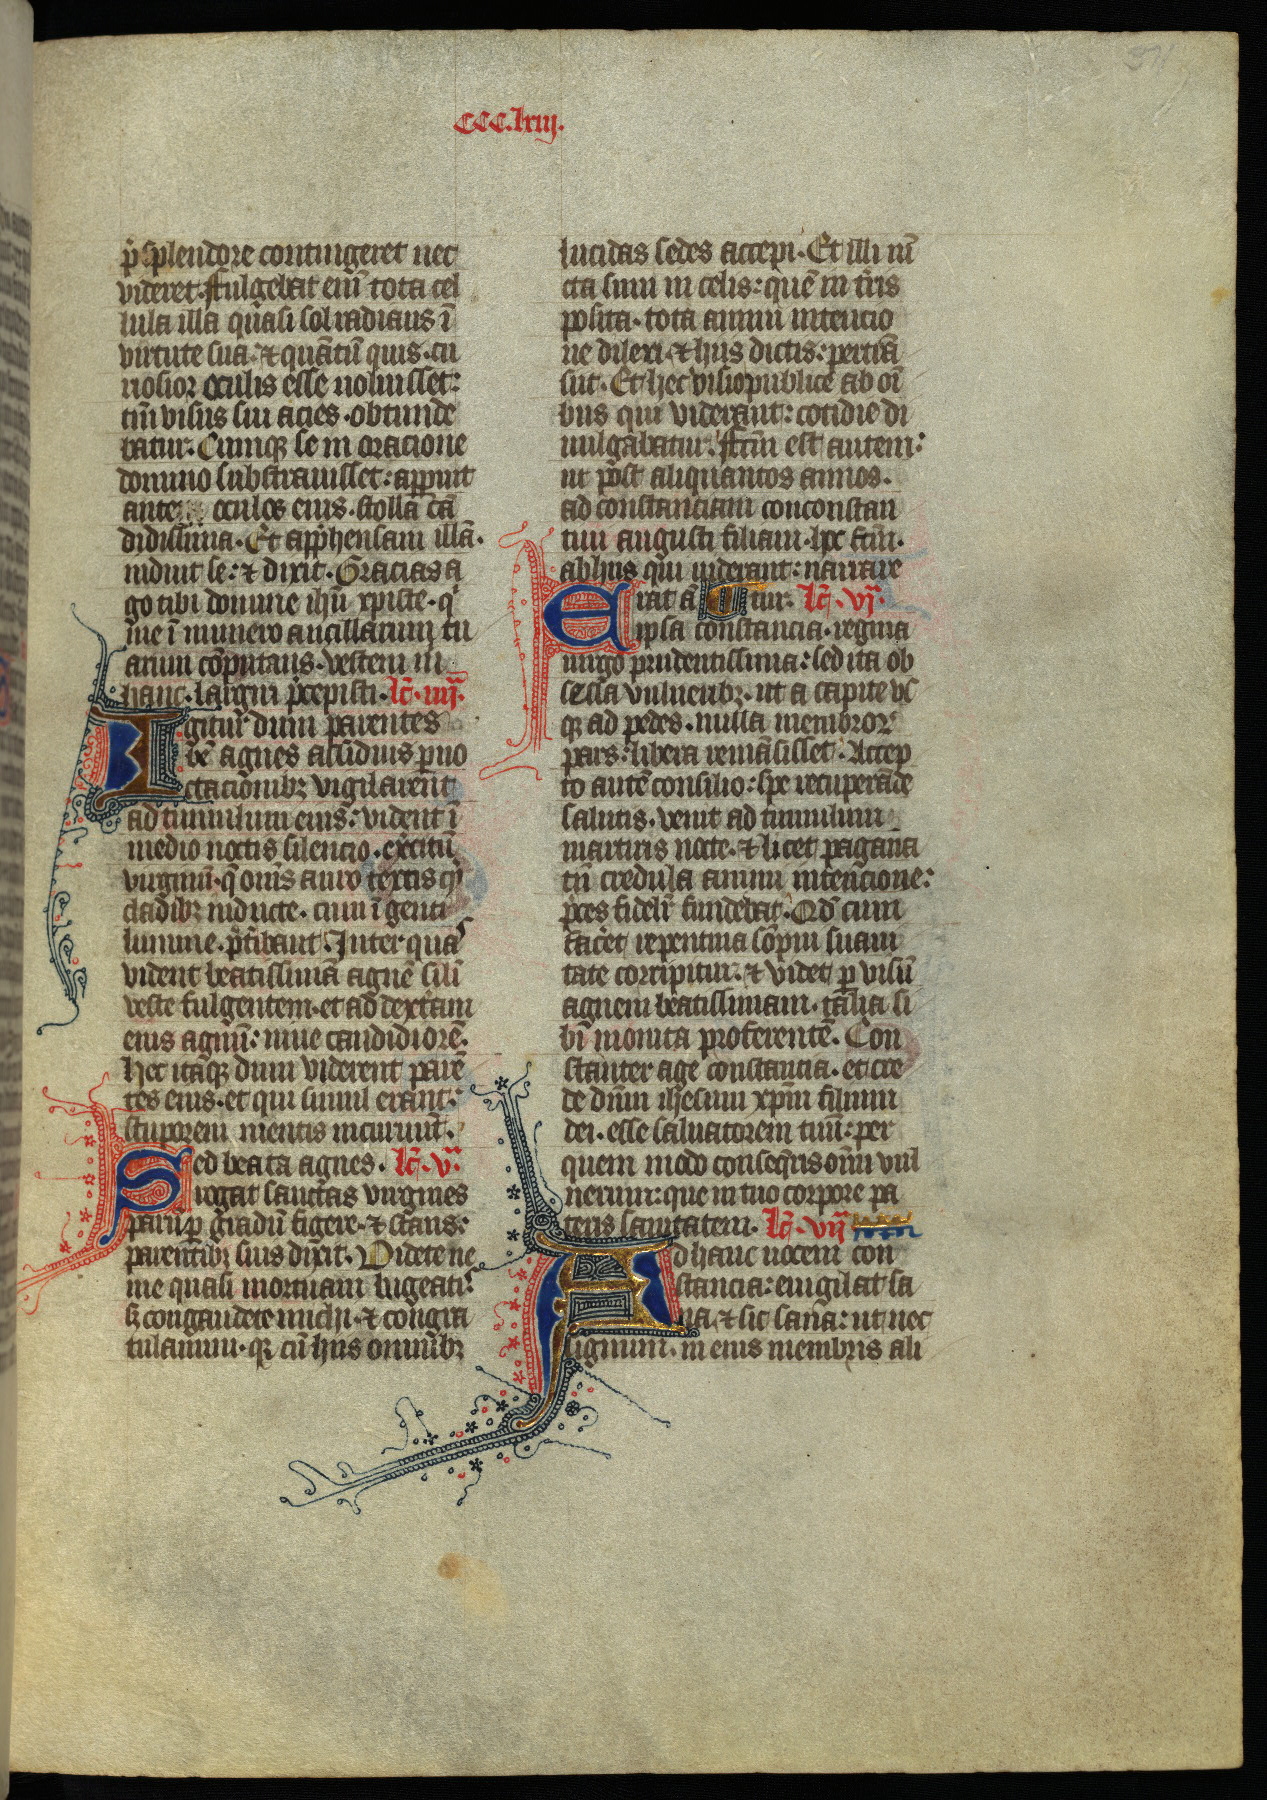 CCC.lxiij.
p̄ splendore contingeret nec
videret. Fulgebat eni̅ tota cel
lula illa quasi sol radians i̅
virtute sua. et qua̅tu̅ quis. cu
riosior oculis esse voluisset:
tm̅ visus sui acies. obtunde
batur. Cumq; se in oracione
domino substrauisset: apparuit
ante oculos eius. stolla ca̅
didissima. Et app̄hensam illa̅.
induit se: et dixit. Gracias a
go tibi domine ihu̅ xpiste. q'
me i̅ numero ancillarum tu
arum co̅putans. vestem m
hanc. largiri p̄cepisti. lc̅. iiij.
Igitur dum parentes
be̅ agnes assiduis p̱no
ctacionib; vigilarent
ad tumulum eius: vident i̅
medio noctis silencio. ex̄citu̅
virginu̅. q̄ om̅s auro textis cy
cladib; inducte. cum i̅genti
lumine. p̄t̄ibant. Inter quas
vident beatissima̅ agne̅ sili̅
veste fulgentem. et ad dextram
eius agnu̅: niue candidiore̅.
Hec itaq; dum viderent pare̅
tes eius. et qui simul erant:
stuporem mentis incurrunt.
Sed beata agnes. lc̅. v.
rogat sanctas virgines
paru̅p̱ gradu̅ figere. et stans:
parentib; suis dixit. Videte ne
me quasi mortuam lugeatis
s; congaudete michi. et congra
tulamini. q; cu̅ hiis omnib;
lucidas sedes accepi. Et illi iu̅
cta sum in celis: que̅ in t̄ris
posita. tota animi intencio
ne dilexi. et hiis dictis: pertra̅
siit. Et hec visio publice ab oi̅
bus qui viderant: cotidie di
uulgabatur. Fc̅m est autem:
ut post aliquantos annos.
ad constanciam conconstan
tini augusti filiam. hoc fc̅m.
ab hiis qui viderant: narrare
Erat a̅ tur. lc̅. vj.
ipsa constancia. regina
uirgo prudentissima: sed ita ob
sessa vulnerib;. ut a capite vs
q; ad pedes. nulla membror̄
pars: libera rema̅sisset. Accep
to aute̅ consilio: spe recuperande
salutis. venit ad tumulum
martiris nocte. et licet pagana
tn̅ credula animi intencione:
p̄ces fideli̅ fundebat. Qd̅ cum
facēt repentina so̅pni suaui
tate corripitur. et videt p̱ visu̅
agnem beatissimam. talia si
bi monita proferente̅. Con
stanter age constancia. et cre
de dn̅m ihesum xpm̅ filium
dei. esse saluatorem tuu̅: per
quem modo conseq̄ris om̅i vul
nerum: que in tuo corpore pa
teris sanitatem. lc̅. vij
Ad hanc uocem con
stancia: euigilat sa
na. et sic sana: ut nec
signum. in eius membris ali